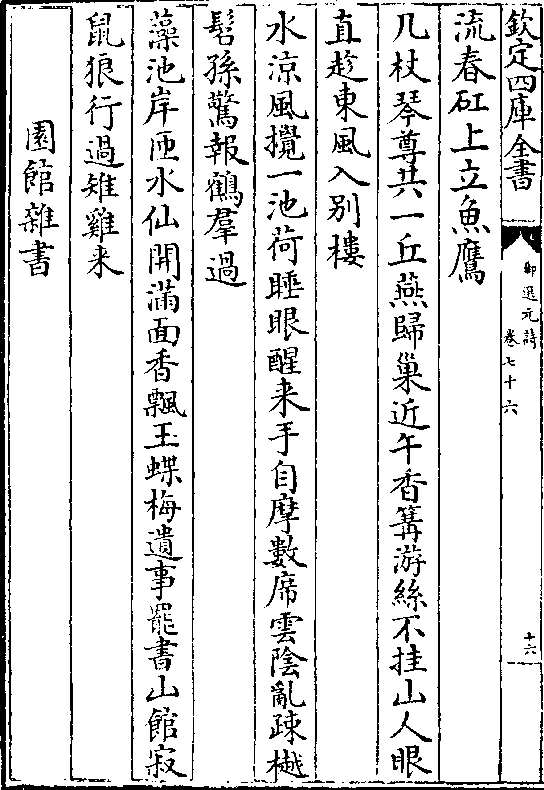 欽定四庫全書
御選元詩
卷七十六
十六
流春矼上立魚鷹
几杖琴尊共一丘燕歸巢近午香篝游絲不挂山人眼
直趁東風入別樓
水涼風攪一池荷睡眼醒来手自摩數席雲陰亂疎樾
髻孫驚報鶴羣過
藻池岸匝水仙開滿面香飄玉蝶梅遺事罷書山館寂
鼠狼行過雉雞来
園館雜書